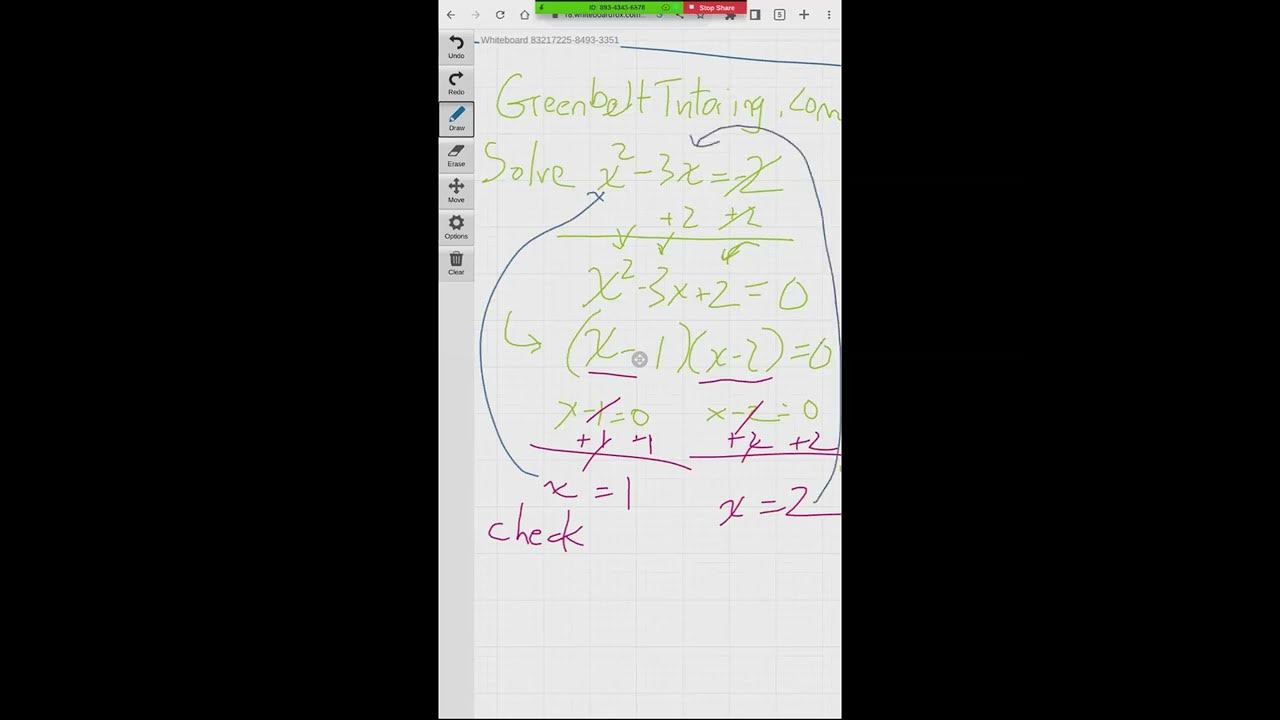 ID: 893-4343-6578
Stop Share
5
Whiteboard 83217225-8493-3351
Undo
Redo
Draw
Erase
Move
Options
Clear
GreenbeltTutoring.com
Solve x² - 3x = -2
+2 +2
x² - 3x + 2 = 0
(x - 1)(x - 2) = 0
x - 1 = 0 x - 2 = 0
+1 +1 +2 +2
x = 1 x = 2
check